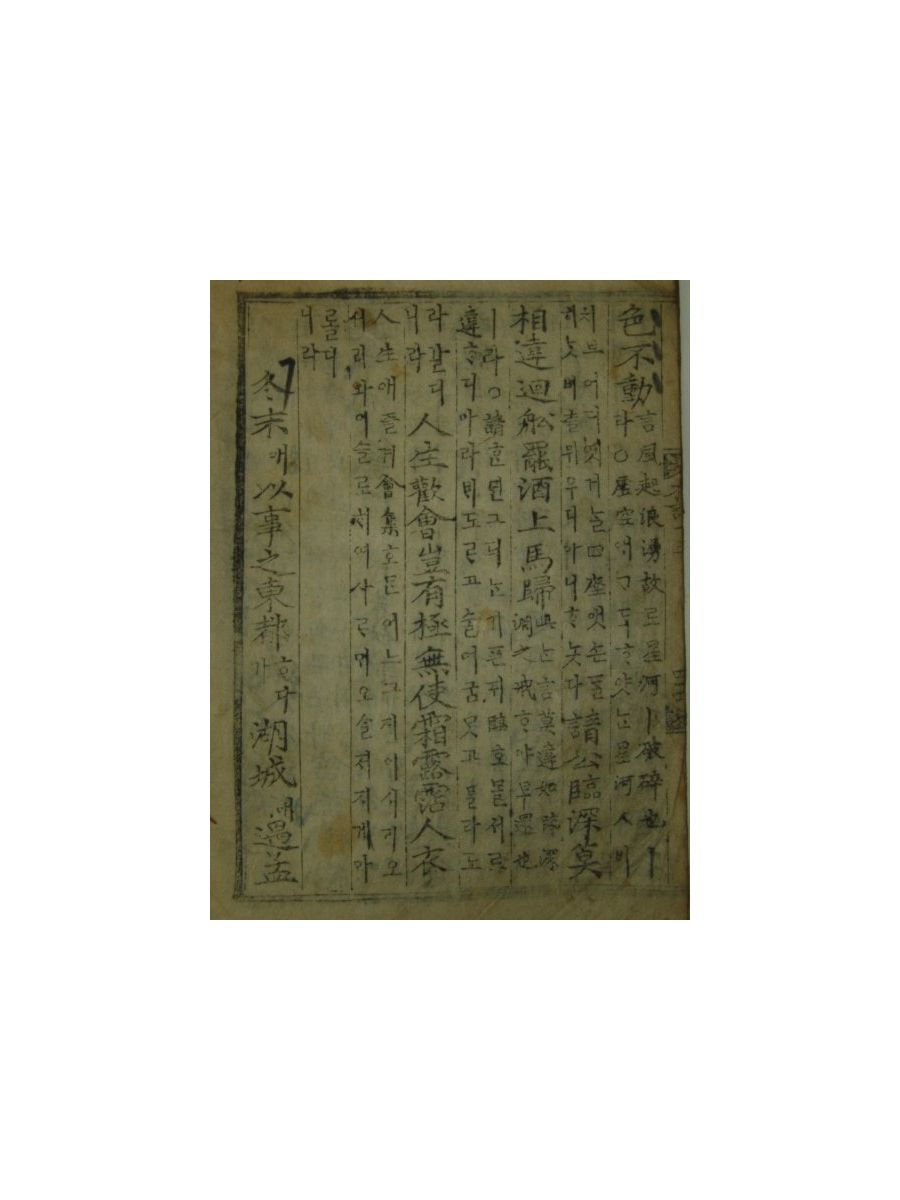 色不動 言風起浪湧故로星河ㅣ破碎也ㅣ
라○虛空애ᄀᆞᄃᆞᆨᄒᆞ얏ᄂᆞᆫ星河人비
처브어뎌옛거늘四座앳손ᄃᆞᆯ
히ᄂᆞᆺ비츨뮈우디아니ᄒᆞᄂᆞᆺ다 請公臨深莫
相違迴船罷酒上馬歸 此ᄂᆞᆫ言莫違如臨深
淵之戒ᄒᆞ야早還也
ㅣ라○請ᄒᆞᆫᄃᆞᆫ그듸ᄂᆞᆫ기픈ᄃᆡ臨호ᄆᆞᆯ서르
違ᄒᆞ디아라ᄇᆡ도ᄅᆞ고술어굼못고ᄆᆞᆯ타도
라갈디
니라 人生歡會豈有極無使霜露霑人衣
人生애즐겨會集호ᄆᆞᆫ어느그지이시리오
서리와이슬로ᄒᆡ여사ᄅᆞᄆᆡ오ᄉᆞᆯ저지게마
롤디
니라
冬末애以事之東都ᄒᆞ다가湖城애遇孟